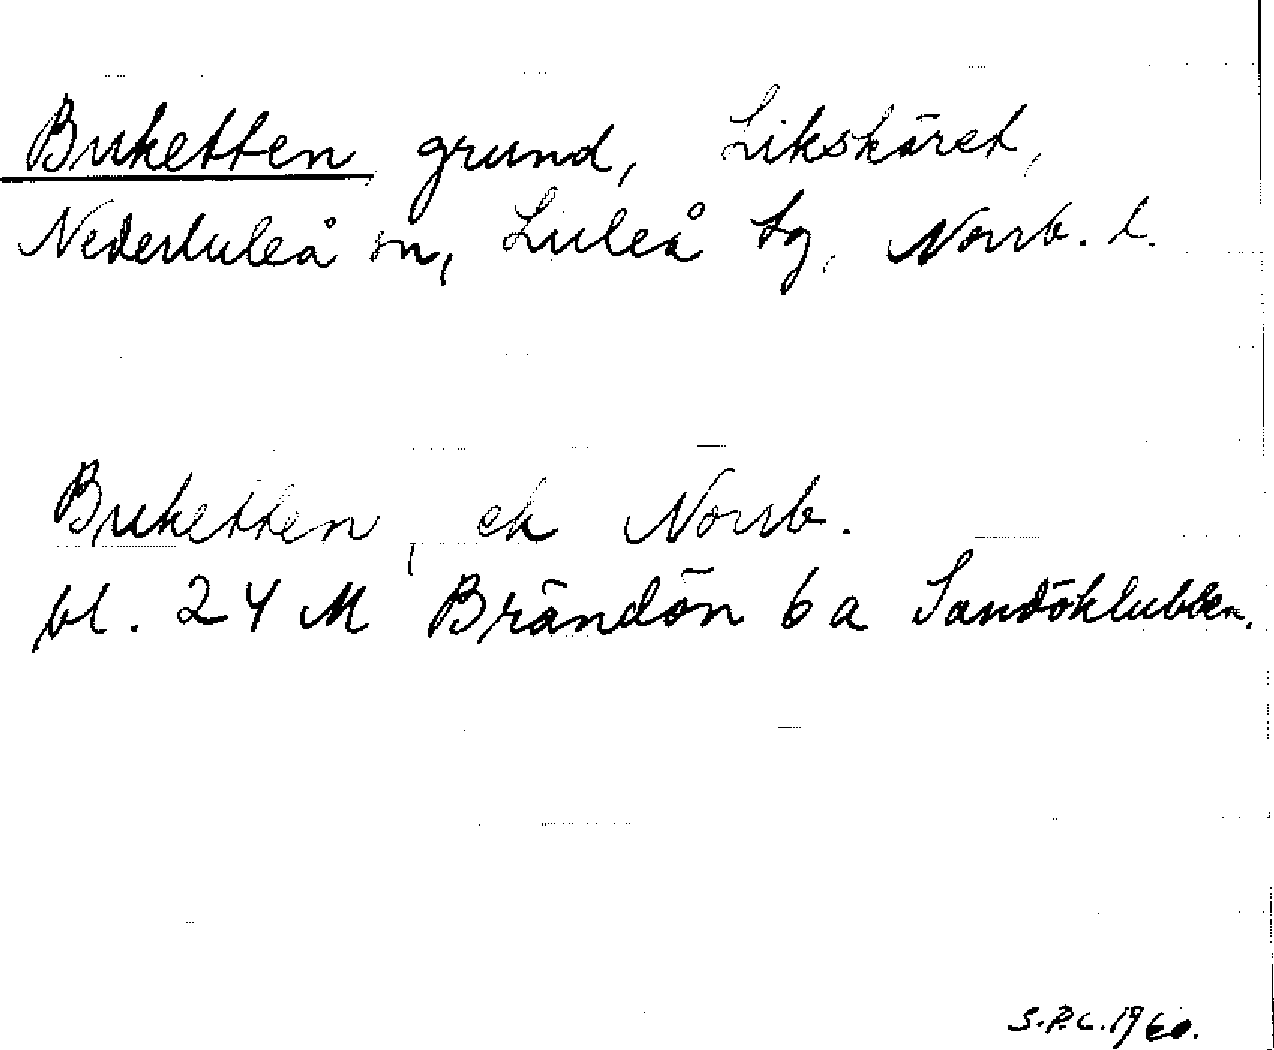 Buketten grund, Likskäret,
Nederluleå sn, Luleå tg, Norrb. l.
Buketten, ek Norrb.
bl. 24 M Brändön 6 a Sandöklubben.
S.P.L. 1960.